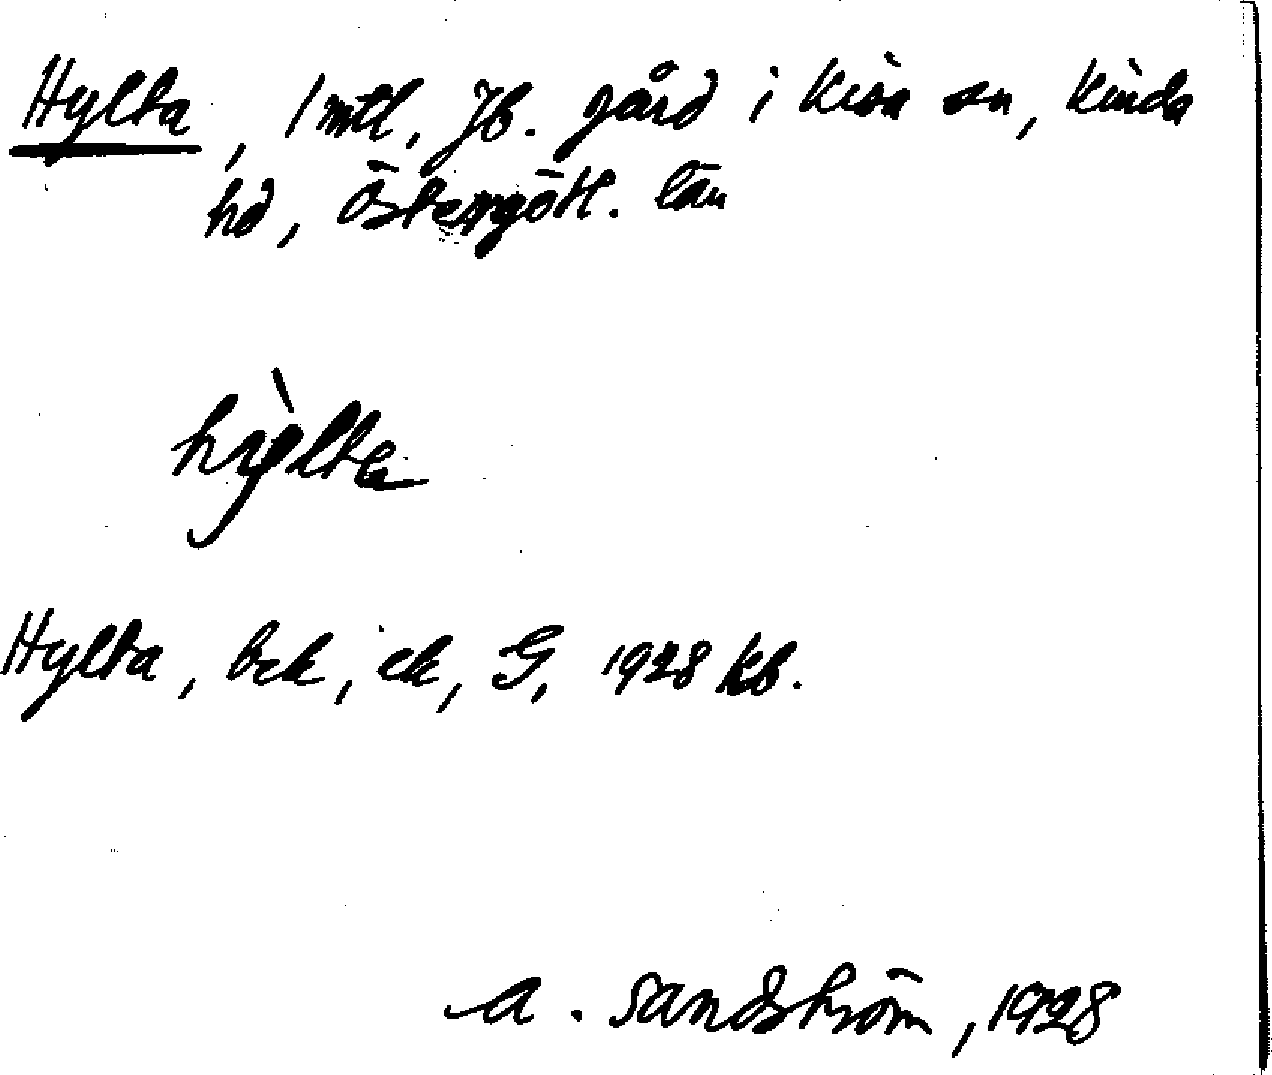 Hylta, 1 mtl, Jb. gård i Kisa sn, Kinda
hd, Östergötl. län
hy̍lta
Hylta, bck, ek, G, 1928 kb.
A. Sandström, 1928